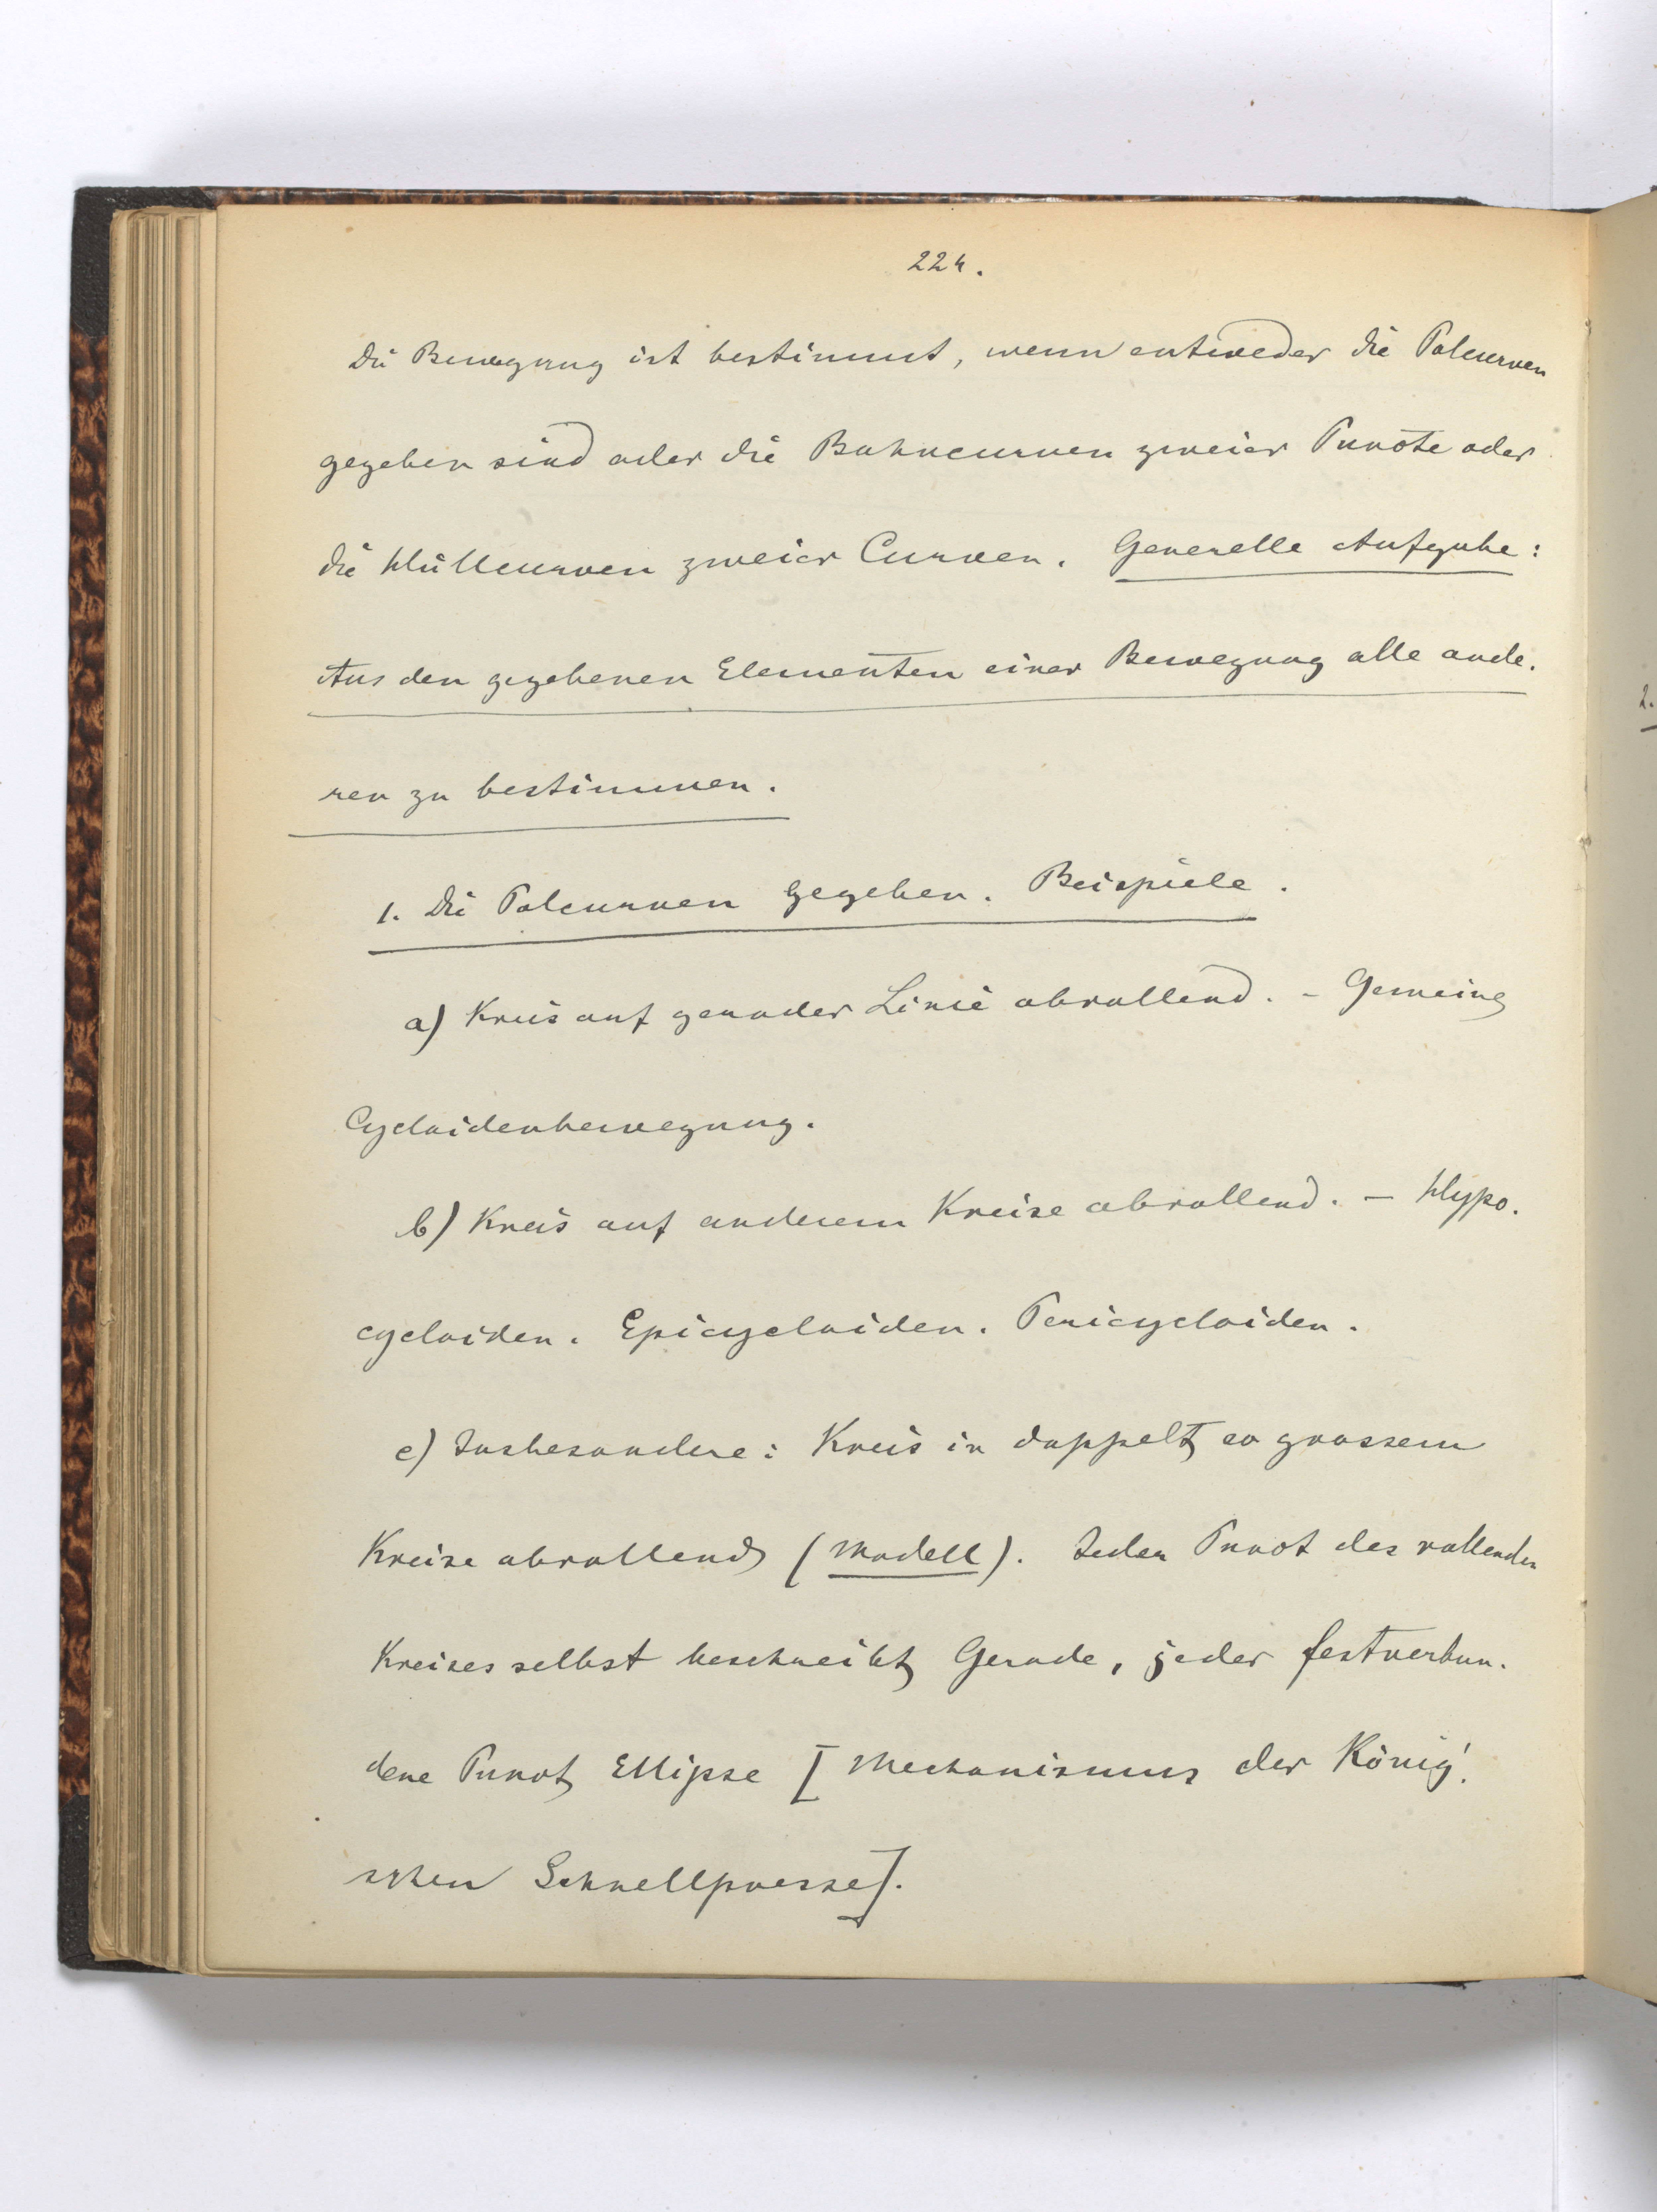 224.
Die Bewegung ist bestimmt, wenn entweder die Polcurven
gegeben sind oder die Bahncurven zweier Puncte oder
die Hüllcurven zweier Curven. Generelle Aufgabe:
Aus den gegebenen Elementen einer Bewegung alle ande-
ren zu bestimmen.
1. Die Polcurven gegeben. Beispiele.
a) Kreis auf gerader Linie abrollend. – Gemeine
Cycloidenbewegung.
b) Kreis auf anderem Kreise abrollend. – Hypo-
cycloiden. Epicycloiden. Pericycloiden.
c) Insbesondere: Kreis in doppelt so grossem
Kreise abrollend (Modell). Jeder Punct des rollenden
Kreises selbst beschreibt Gerade, jeder festverbun-
dene Punct Ellipse [Mechanismus der König'-
schen Schnellpresse].
2.